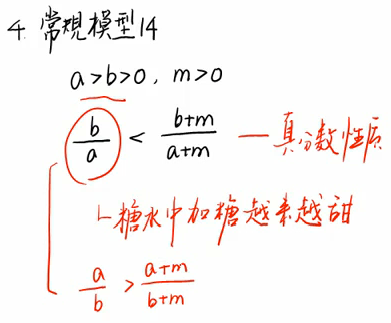 4. 常規模型14
a>b>0, m>0
b/a < (b+m)/(a+m) — 真分数性质
糖水中加糖越来越甜
a/b > (a+m)/(b+m)